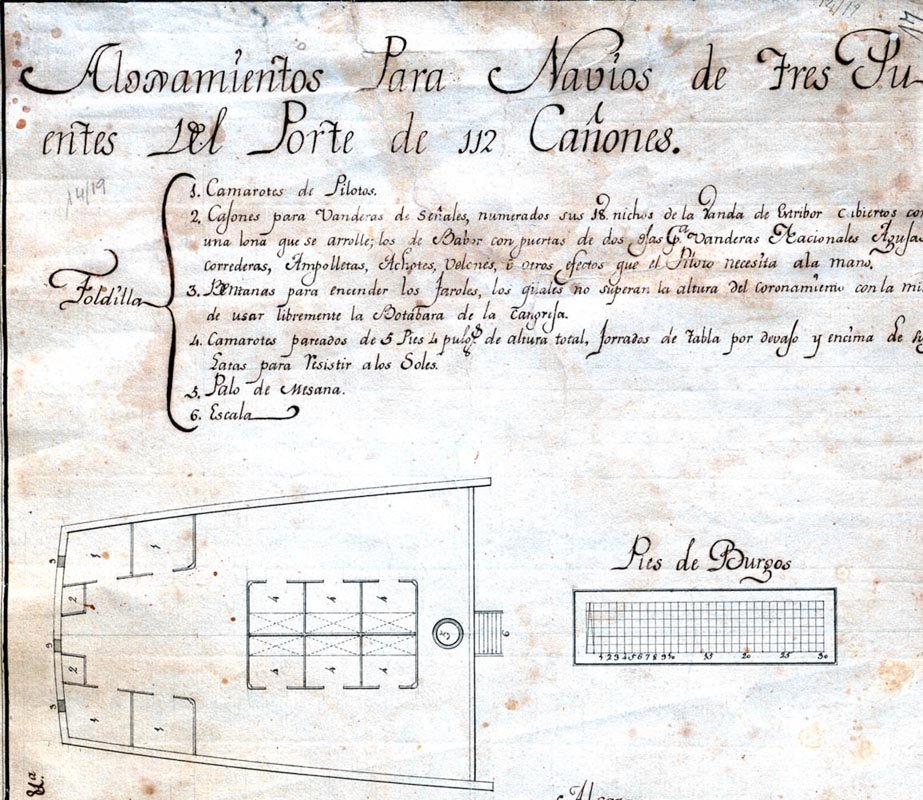 Aloxamientos Para Navios de Tres Pu-
entes Del Porte de 112 Cañones.
14/19
Toldilla
1. Camarotes de Pilotos.
2. Caxones para Vanderas de Señales, numerados sus 18 nichos de la Vanda de Estribor cubiertos con
una lona que se arrolle; los de Babor con puertas de dos ojas pª Vanderas Nacionales Agujas
correderas, Ampolletas, Achotes, Velones, ú otros efectos que el Piloto necesita ala mano.
3. Bentanas para encender los faroles, los quales no superan la altura del coronamiento con la mi
de usar libremente la Botabara de la Cangreja.
4. Camarotes pareados de 5 Pies 4 pulgs de altura total, forrados de tabla por devaxo y encima de su
Latas para resistir alos Soles.
5. Palo de Mesana.
6. Escala
Pies de Burgos
1 2 3 4 5 6 7 8 9 10 15 20 25 30
1 1
3
2
4 4 4
3
5
6
2
4 4 4
3
1 1